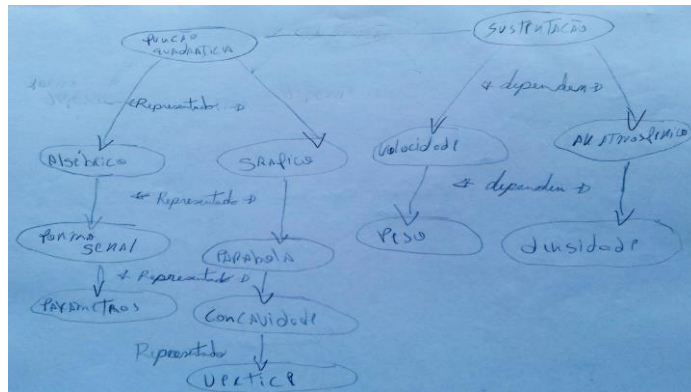 FUNÇÃO
QUADRÁTICA
SUSTENTAÇÃO
Representados
dependem
Algébrico
GRÁFICO
Velocidade
AR ATMOSFÉRICO
Representado
dependem
FORMA
GERAL
PARÁBOLA
PESO
densidade
Representado
PARÂMETROS
CONCAVIDADE
Representado
VÉRTICE